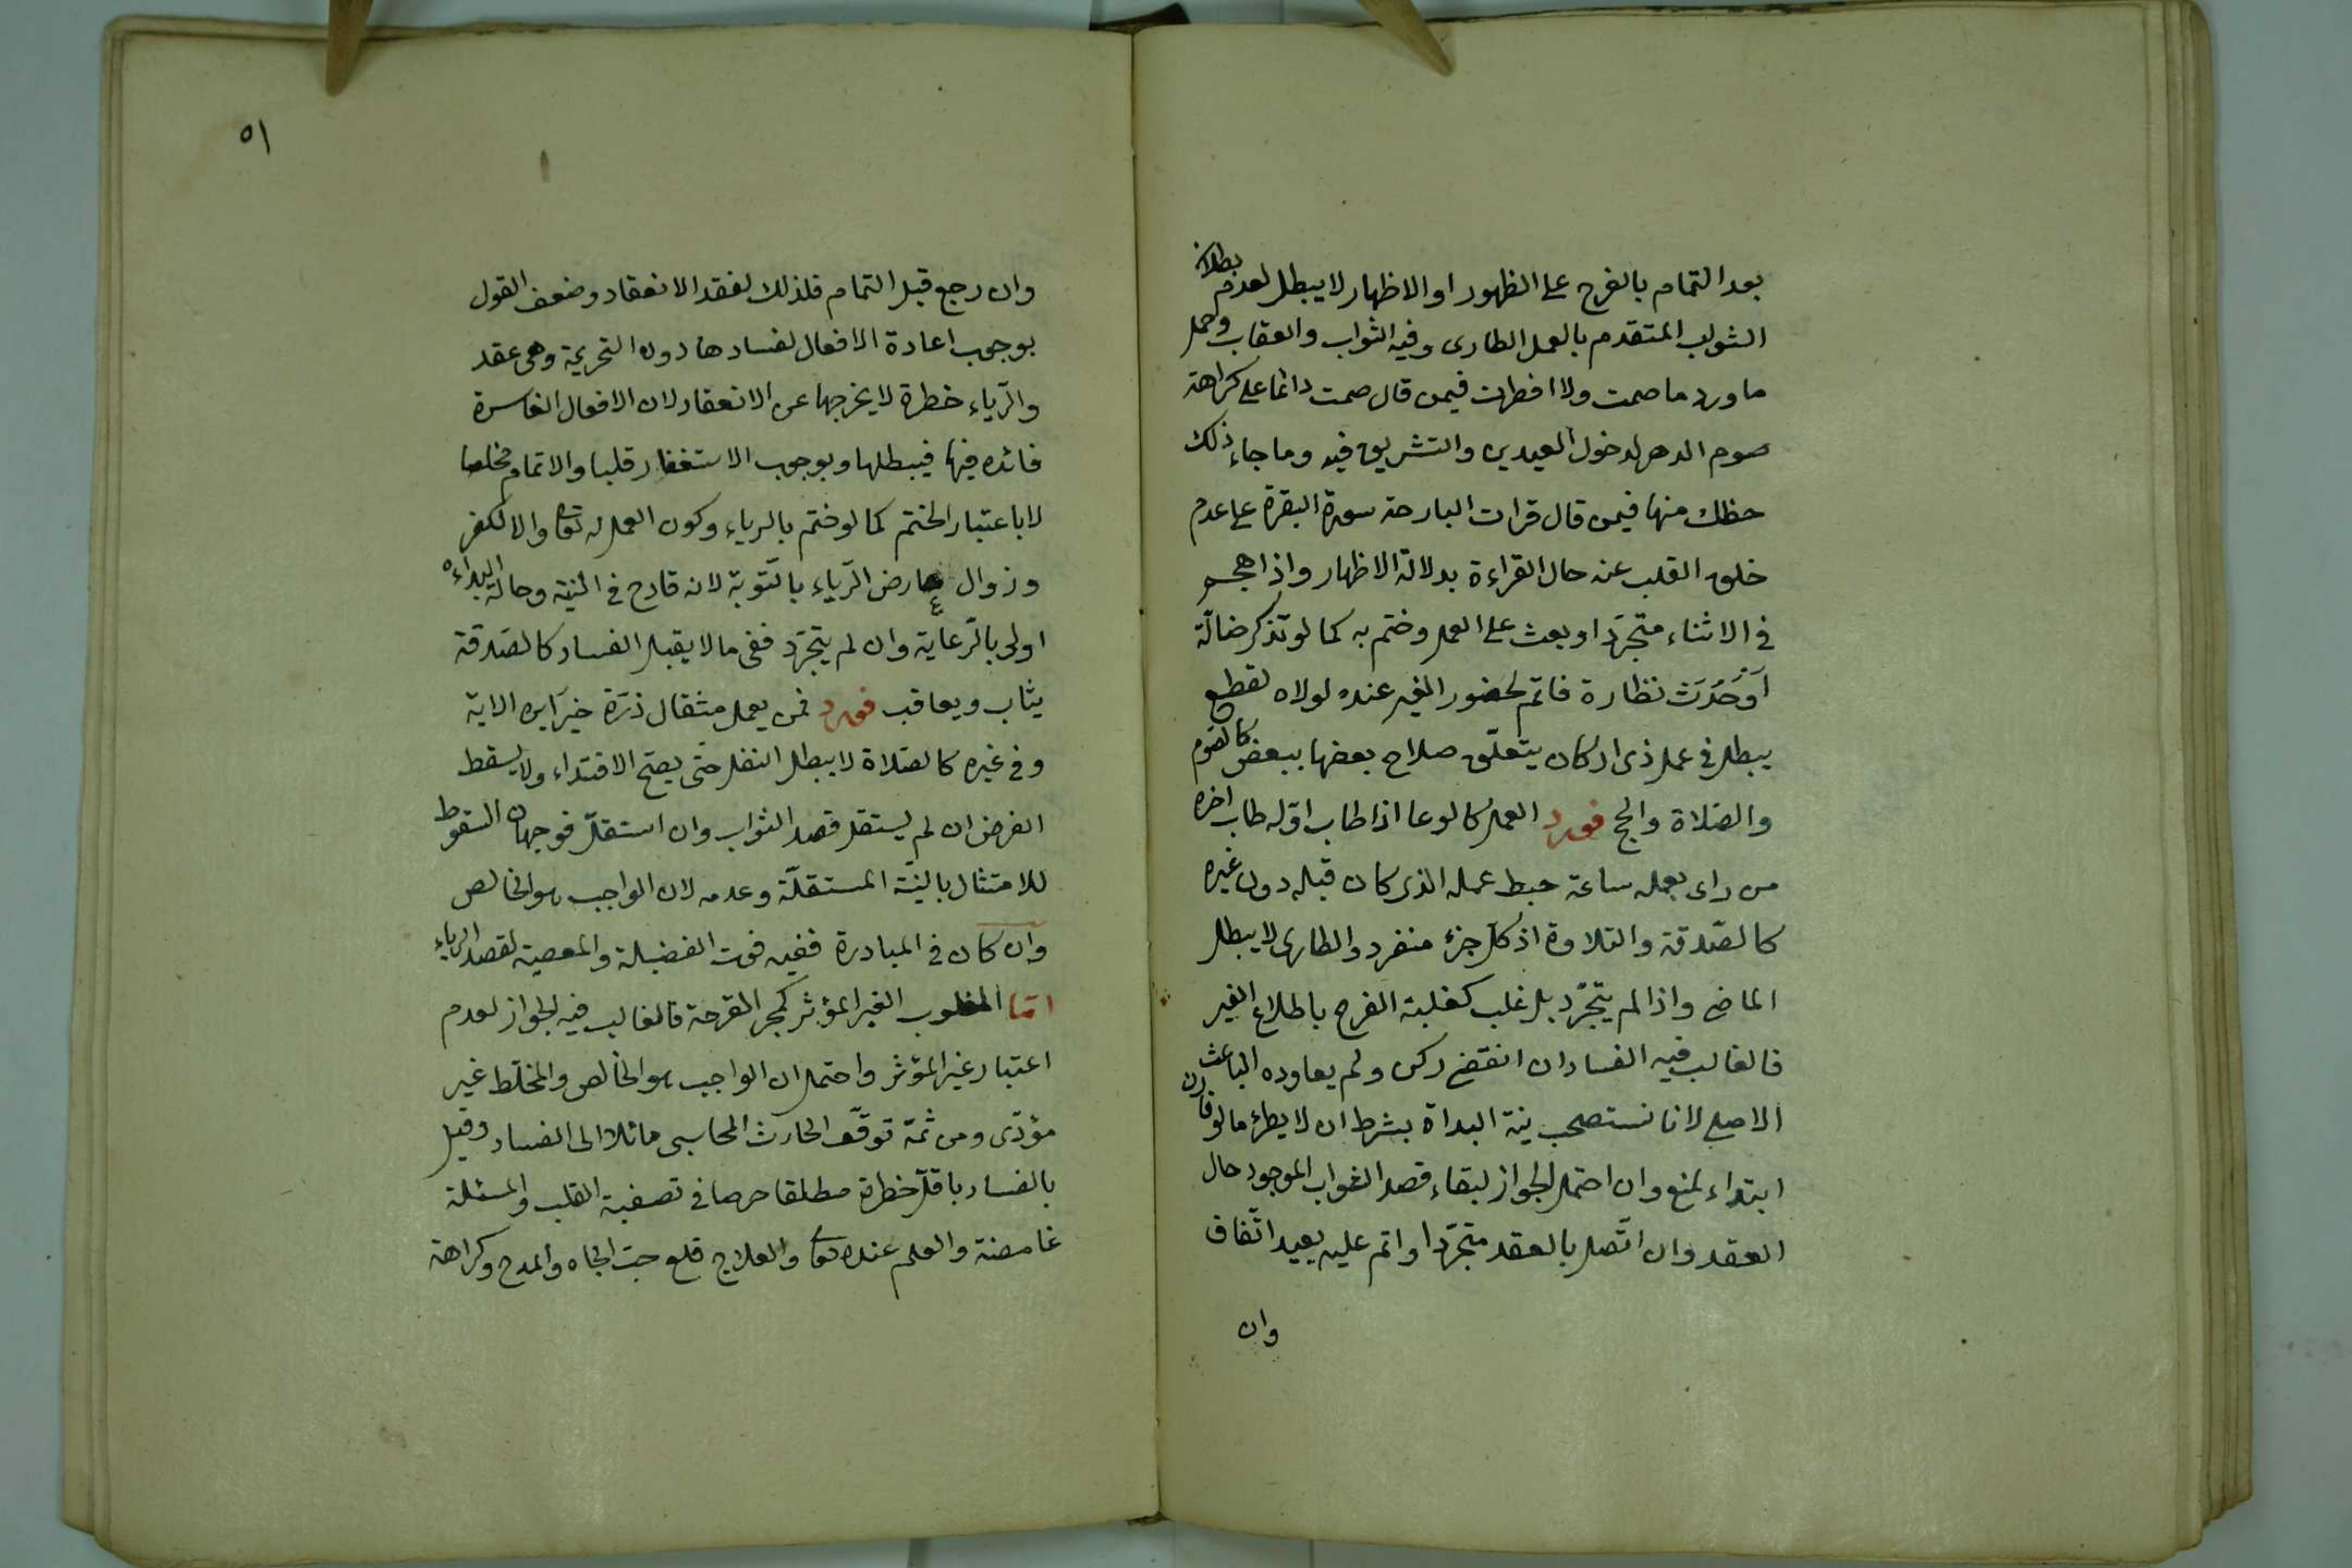 بعد التمام بالفرح على الظهور او الاظهار لا يبطل لعدم بطلان
الثواب المتقدم بالعمل الطارى وفيه الثواب والعقاب وحمل
ما ورد ما صمت ولا افطرت فيمن قال صمت دائما على كراهة
صوم الدهر لدخول العيدين والتشريق فيه وما جاء ذلك
حظك منها فيمن قال قرات البارحة سورة البقرة على عدم
خلو القلب عنه حال القراءة بدلالة الاظهار واذا هجم
فى الاثناء متجردا وبعث على العمل وختم به كما لو تذكر ضالة
اَوْ حَدَثَ نظارة فاتم لحضور الغير عنده لولاه لقطع
يبطل فى عمل ذى اركان يتعلق صلاح بعضها ببعض كالصوم
والصّلاة والحج فورد العمل كالوعا اذا طاب اوّله طاب اخره
من راى بعمله ساعة حبط عمله الذى كان قبله دون غيره
كالصّدقة والتلاوة اذ كلّ جزء منفرد والطارى لا يبطل
الماضى واذا لم يتجرّد بل غلب كغلبة الفرح باطلاع الغير
فالغالب فيه الفساد ان انقضى ركن ولم يعاوده الباعث
الاصلى لانا نستصحب نية البداة بشرط ان لا يطرء ما لو قارن
ابتداء لمنع وان احتمل الجواز لبقاء قصد الثواب الموجود حال
العقد وان اتّصل بالعقد متجرّدا واتم عليه يعيد اتّفاق
وان
٥١
وان رجع قبل التمام فلذلك لفقد الانعقاد وضعف القول
بوجوب اعادة الافعال لفسادها دون التحريمة وهى عقد
والرّياء خطرة لا يخرجها عن الانعقاد لان الافعال الفاسدة
فائده فيها فيبطلها وبوجوب الاستغفار قلبا والاتمام مخلصا
لا باعتبار الختم كما لو ختم بالرياء وكون العمل له تعالى والا لكفر
وزوال عارض الرّياء بالتّوبة لانه قادح فى النية وحالة البداءه
اولى بالرّعاية وان لم يتجرّد ففى ما لا يقبل الفساد كالصّدقة
يثاب ويعاقب فورد فمن يعمل مثقال ذرّة خيرا يره الاية
وفى غيره كالصّلاة لا يبطل النفل حتى يصحّ الاقتداء ولا يسقط
الفرض ان لم يستقل قصد الثواب وان استقلّ فوجهان السقوط
للامتثال بالنيّة المستقلّة وعدمه لان الواجب هو الخالص
وان كان فى المبادرة ففيه فوت الفضيلة والمعصية لقصد الرياء
امّا المغلوب الغير المؤثر كمجر المفرحة فالغالب فيه الجواز لعدم
اعتبار غير المؤثر واحتمل ان الواجب هو الخالص والمخلّط غير
مؤدّى ومن ثمّة توقّف الحارث المحاسبى مائلا الى الفساد وقيل
بالفساد باقلّ خطرة مطلقا حرصا فى تصفية القلب والمسئلة
غامضة والعلم عنده تعالى والعلاج قلع حبّ الجاه والمدح وكراهة